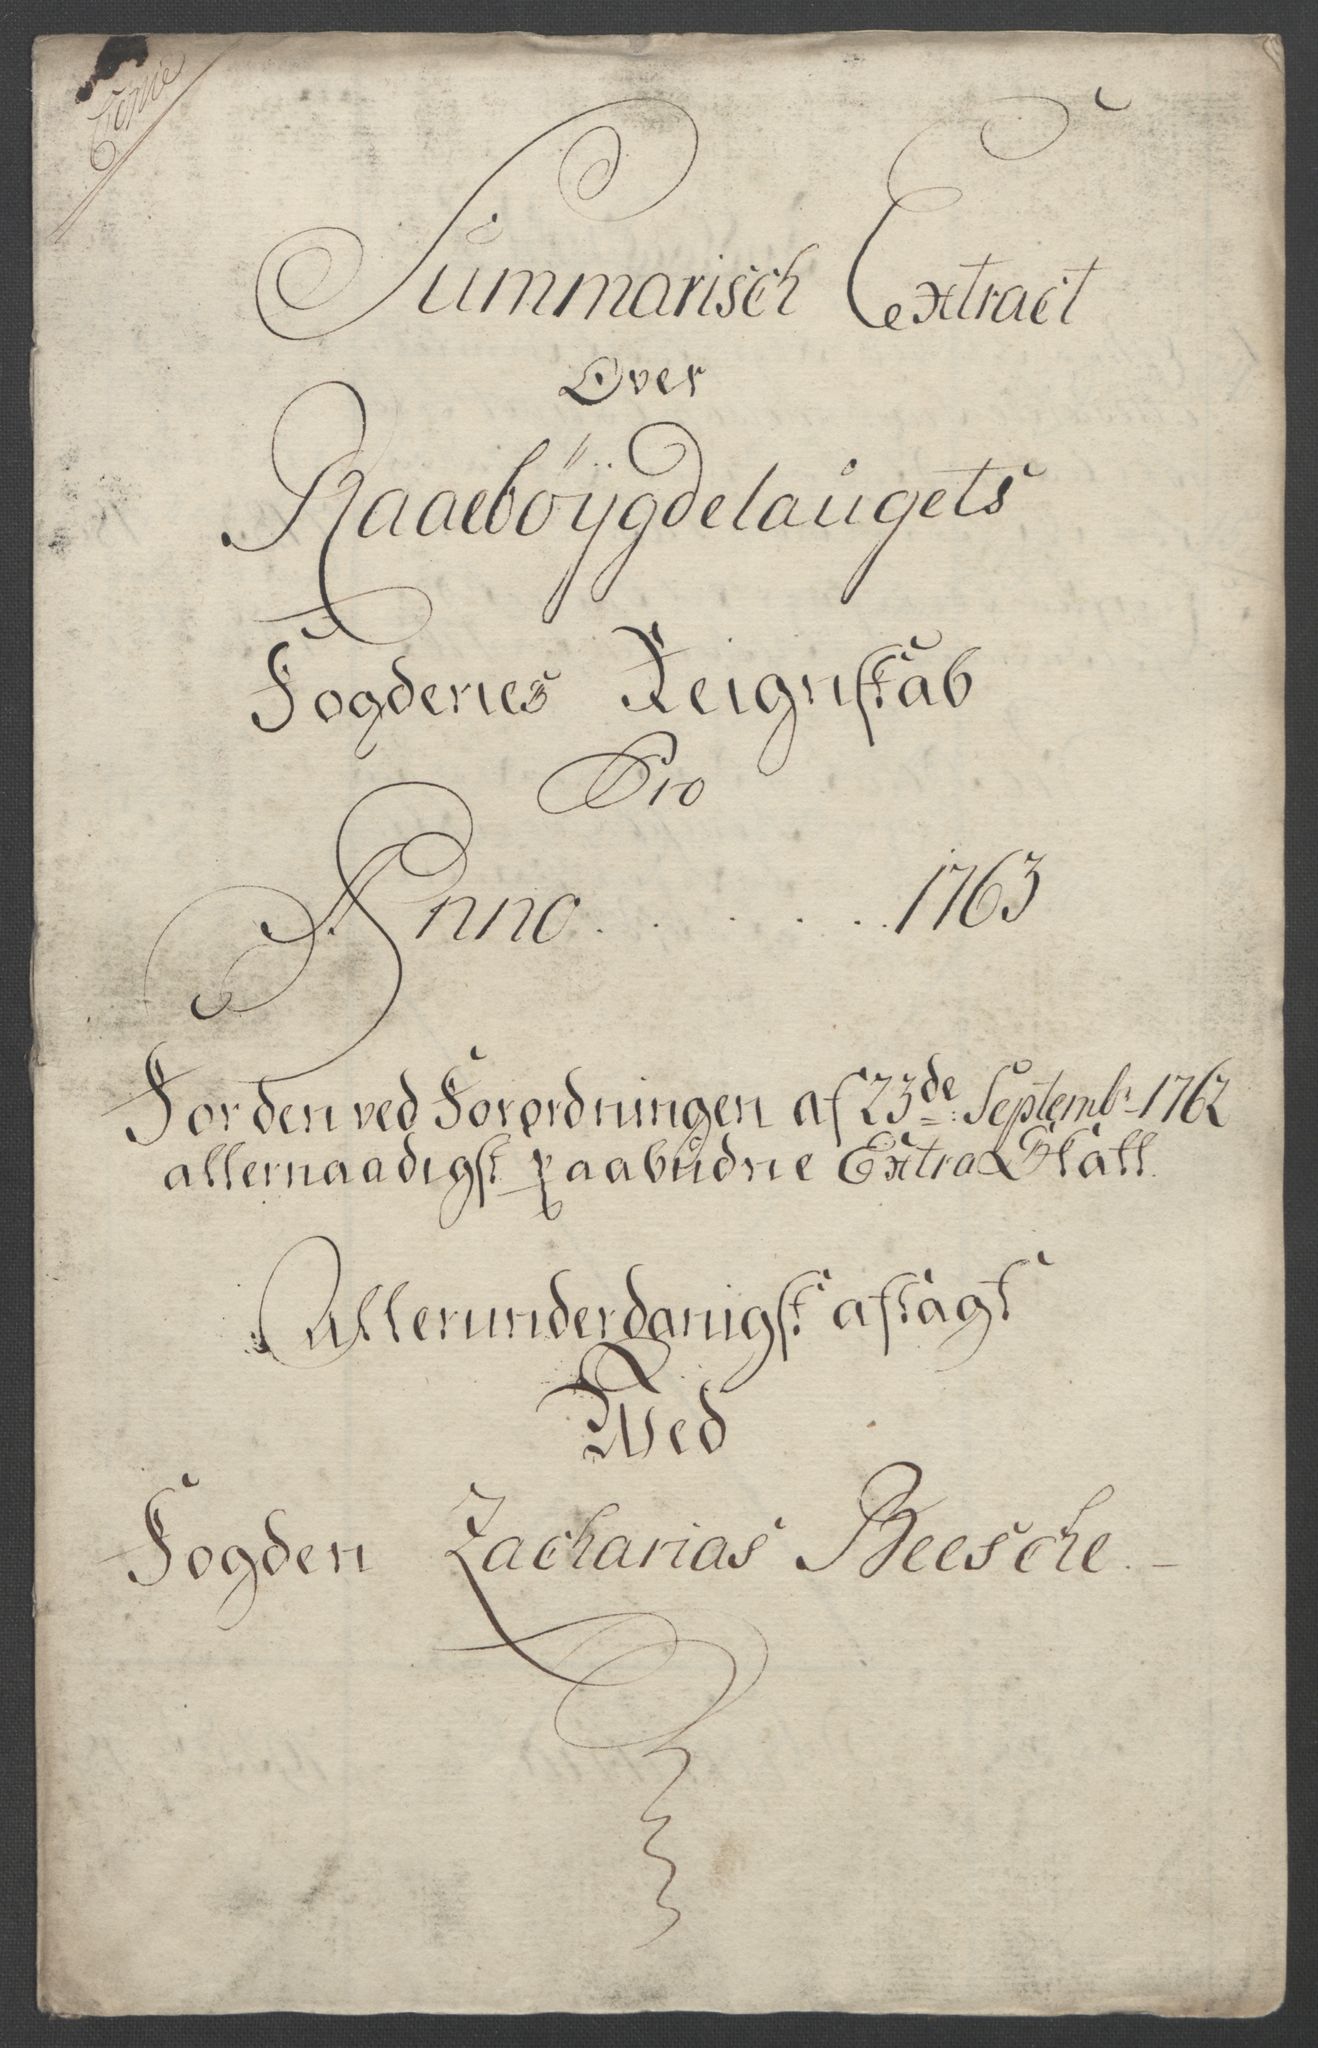 Copie
Summarisch Extract
Over
Raaebøÿgdelaugets
Fogderies Reignskab
Pro
Anno . . . . . . 1763
For den ved Forordningen af 23de Septembr 1762
allernaadigst paabudne Extra Skatt.
Allerunderdanigst aflagt
Ved
Fogden Zacharias Beesche.